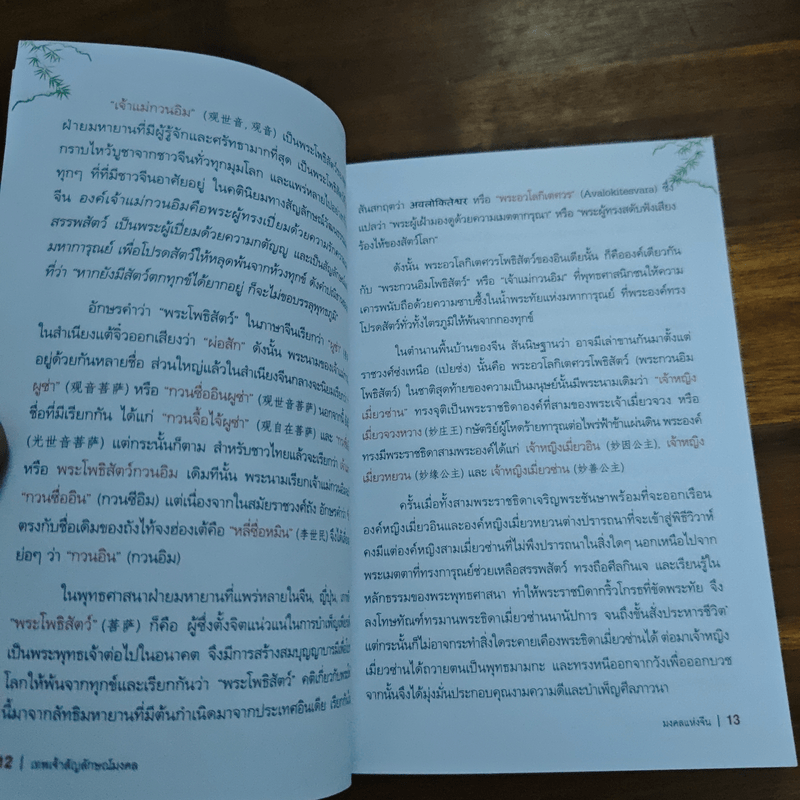 "เจ้าแม่กวนอิม" (观世音, 观音) เป็นพระโพธิสัตว์
ฝ่ายมหายานที่มีผู้รู้จักและศรัทธามากที่สุด เป็นพระโพธิสัตว์
กราบไหว้บูชาจากชาวจีนทั่วทุกมุมโลก และแพร่หลายไป
ทุกๆ ที่ที่มีชาวจีนอาศัยอยู่ ในคตินิยมทางสัญลักษณ์
จีน องค์เจ้าแม่กวนอิมคือพระผู้ทรงเปี่ยมด้วยความ
สรรพสัตว์ เป็นพระผู้เปี่ยมด้วยความกตัญญู และเป็น
มหาการุณย์ เพื่อโปรดสัตว์ให้หลุดพ้นจากห้วงทุกข์
ที่ว่า "หากยังมีสัตว์ตกทุกข์ได้ยากอยู่ ก็จะไม่ขอบรรลุพุทธภูมิ"
อักษรคำว่า "พระโพธิสัตว์" ในภาษาจีนเรียกว่า "ผูซ่า"
ในสำเนียงแต้จิ๋วออกเสียงว่า "ผ่อสัก" ดังนั้น พระนามของ
อยู่ด้วยกันหลายชื่อ ส่วนใหญ่แล้วในสำเนียงจีนกลางจะนิยม
ผูซ่า" (观音菩萨) หรือ "กวนซื่ออินผูซ่า" (观世音菩萨) นอกจากนี้
ชื่อที่มีเรียกกัน ได้แก่ "กวนจื้อไจ้ผูซ่า" (观自在菩萨) และ
(光世音菩萨) แต่กระนั้นก็ตาม สำหรับชาวไทยแล้วจะเรียกว่า
หรือ พระโพธิสัตว์กวนอิม เดิมทีนั้น พระนามเจ้าแม่กวนอิม
"กวนซื่ออิน" (กวนซีอิม) แต่เนื่องจากในสมัยราชวงศ์ถัง อักษร
ตรงกับชื่อเดิมของถังไท่จงฮ่องเต้คือ "หลี่ซื่อหมิน" (李世民)
ย่อๆ ว่า "กวนอิน" (กวนอิม)
ในพุทธศาสนาฝ่ายมหายานที่แพร่หลายในจีน, ญี่ปุ่น,
"พระโพธิสัตว์" (菩萨) ก็คือ ผู้ซึ่งตั้งจิตแน่วแน่ในการบำเพ็ญ
เป็นพระพุทธเจ้าต่อไปในอนาคต จึงมีการสร้างสมบุญญาบารมี
โลกให้พ้นจากทุกข์และเรียกกันว่า "พระโพธิสัตว์" คติเกี่ยวกับ
นี้มาจากลัทธิมหายานที่มีต้นกำเนิดมาจากประเทศอินเดีย
12 | เทพเจ้าสัญลักษณ์มงคล
สันสกฤตว่า अवलोकितेश्वर หรือ "พระอวโลกิเตศวร" (Avalokitesvara) ซึ่ง
แปลว่า "พระผู้เฝ้ามองดูด้วยความเมตตากรุณา" หรือ "พระผู้ทรงสดับฟังเสียง
ร้องไห้ของสัตว์โลก"
ดังนั้น พระอวโลกิเตศวรโพธิสัตว์ของอินเดียนั้น ก็คือองค์เดียวกัน
กับ "พระกวนอิมโพธิสัตว์" หรือ "เจ้าแม่กวนอิม" ที่พุทธศาสนิกชนให้ความ
เคารพนับถือด้วยความซาบซึ้งในน้ำพระทัยแห่งมหาการุณย์ ที่พระองค์ทรง
โปรดสัตว์ทั่วทั้งไตรภูมิให้พ้นจากกองทุกข์
ในตำนานพื้นบ้านของจีน สันนิษฐานว่า อาจมีเล่าขานกันมาตั้งแต่
ราชวงศ์ซ่งเหนือ (เปยซ่ง) นั้นคือ พระอวโลกิเตศวรโพธิสัตว์ (พระกวนอิม
โพธิสัตว์) ในชาติสุดท้ายของความเป็นมนุษย์นั้นมีพระนามเดิมว่า "เจ้าหญิง
เมี่ยวซ่าน" ทรงจุติเป็นพระราชธิดาองค์ที่สามของพระเจ้าเมี่ยวจวง หรือ
เมี่ยวจวงหวาง (妙庄王) กษัตริย์ผู้โหดร้ายทารุณต่อไพร่ฟ้าข้าแผ่นดิน พระองค์
ทรงมีพระราชธิดาสามพระองค์ได้แก่ เจ้าหญิงเมี่ยวอิน (妙因公主), เจ้าหญิง
เมี่ยวหยวน (妙缘公主) และ เจ้าหญิงเมี่ยวซ่าน (妙善公主)
ครั้นเมื่อทั้งสามพระราชธิดาเจริญพระชันษาพร้อมที่จะออกเรือน
องค์หญิงเมี่ยวอินและองค์หญิงเมี่ยวหยวนต่างปรารถนาที่จะเข้าสู่พิธีวิวาห์
คงมีแต่องค์หญิงสามเมี่ยวซ่านที่ไม่พึงปรารถนาในสิ่งใดๆ นอกเหนือไปจาก
พระเมตตาที่ทรงการุณย์ช่วยเหลือสรรพสัตว์ ทรงถือศีลกินเจ และเรียนรู้ใน
หลักธรรมของพระพุทธศาสนา ทำให้พระราชบิดากริ้วโกรธที่ขัดพระทัย จึง
ลงโทษทัณฑ์ทรมานพระธิดาเมี่ยวซ่านนานัปการ จนถึงขั้นสั่งประหารชีวิต
แต่กระนั้นก็ไม่อาจกระทำสิ่งใดระคายเคืองพระธิดาเมี่ยวซ่านได้ ต่อมาเจ้าหญิง
เมี่ยวซ่านได้ถวายตนเป็นพุทธมามกะ และทรงหนีออกจากวังเพื่อออกบวช
จากนั้นจึงได้มุ่งมั่นประกอบคุณงามความดีและบำเพ็ญศีลภาวนา
มงคลแห่งจีน | 13